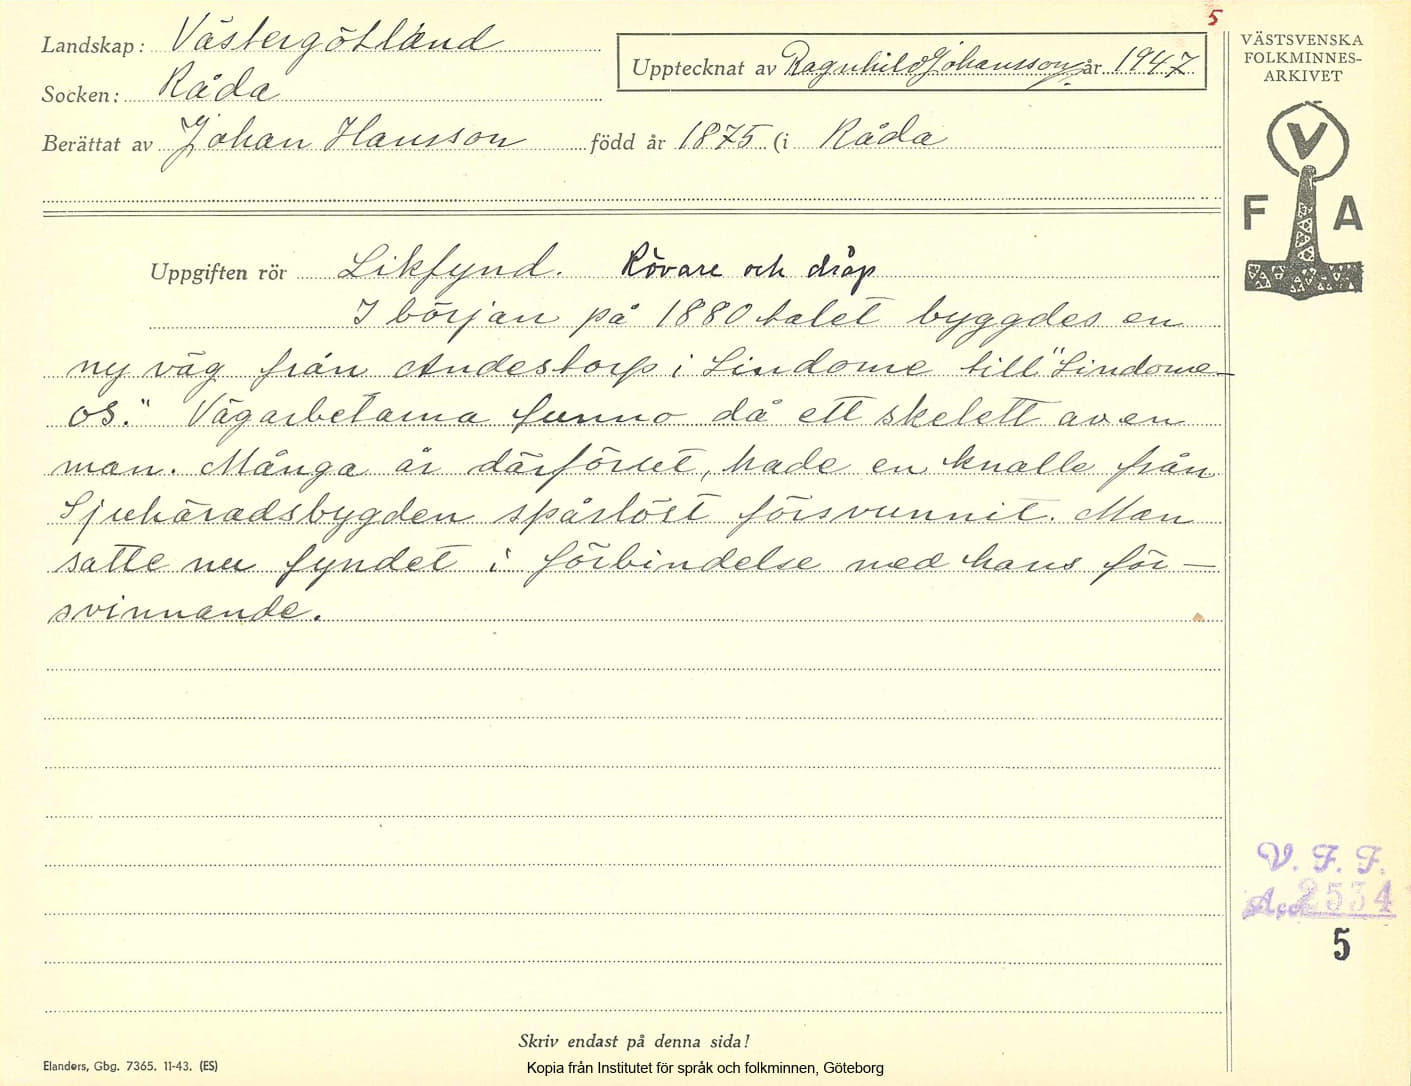 5
Landskap: Västergötland
Socken: Råda
Berättat av Johan Hansson född år 1875 (i Råda
Upptecknat av Ragnhild Johansson år 1947
VÄSTSVENSKA
FOLKMINNES-
ARKIVET
V
F A
Uppgiften rör Likfynd. Rövare och dråp
I början på 1880 talet byggdes en
ny väg från Andestorp i Lindome till "Lindome-
os." Vägarbetarna funno då ett skelett av en
man. Många år därförut, hade en knalle från
Sjuhäradsbygden spårlöst försvunnit. Man
satte nu fyndet i förbindelse med hans för-
svinnande.
V. F. F.
Acc 2534
5
Skriv endast på denna sida!
Elanders, Gbg. 7365. 11-43. (ES)
Kopia från Institutet för språk och folkminnen, Göteborg